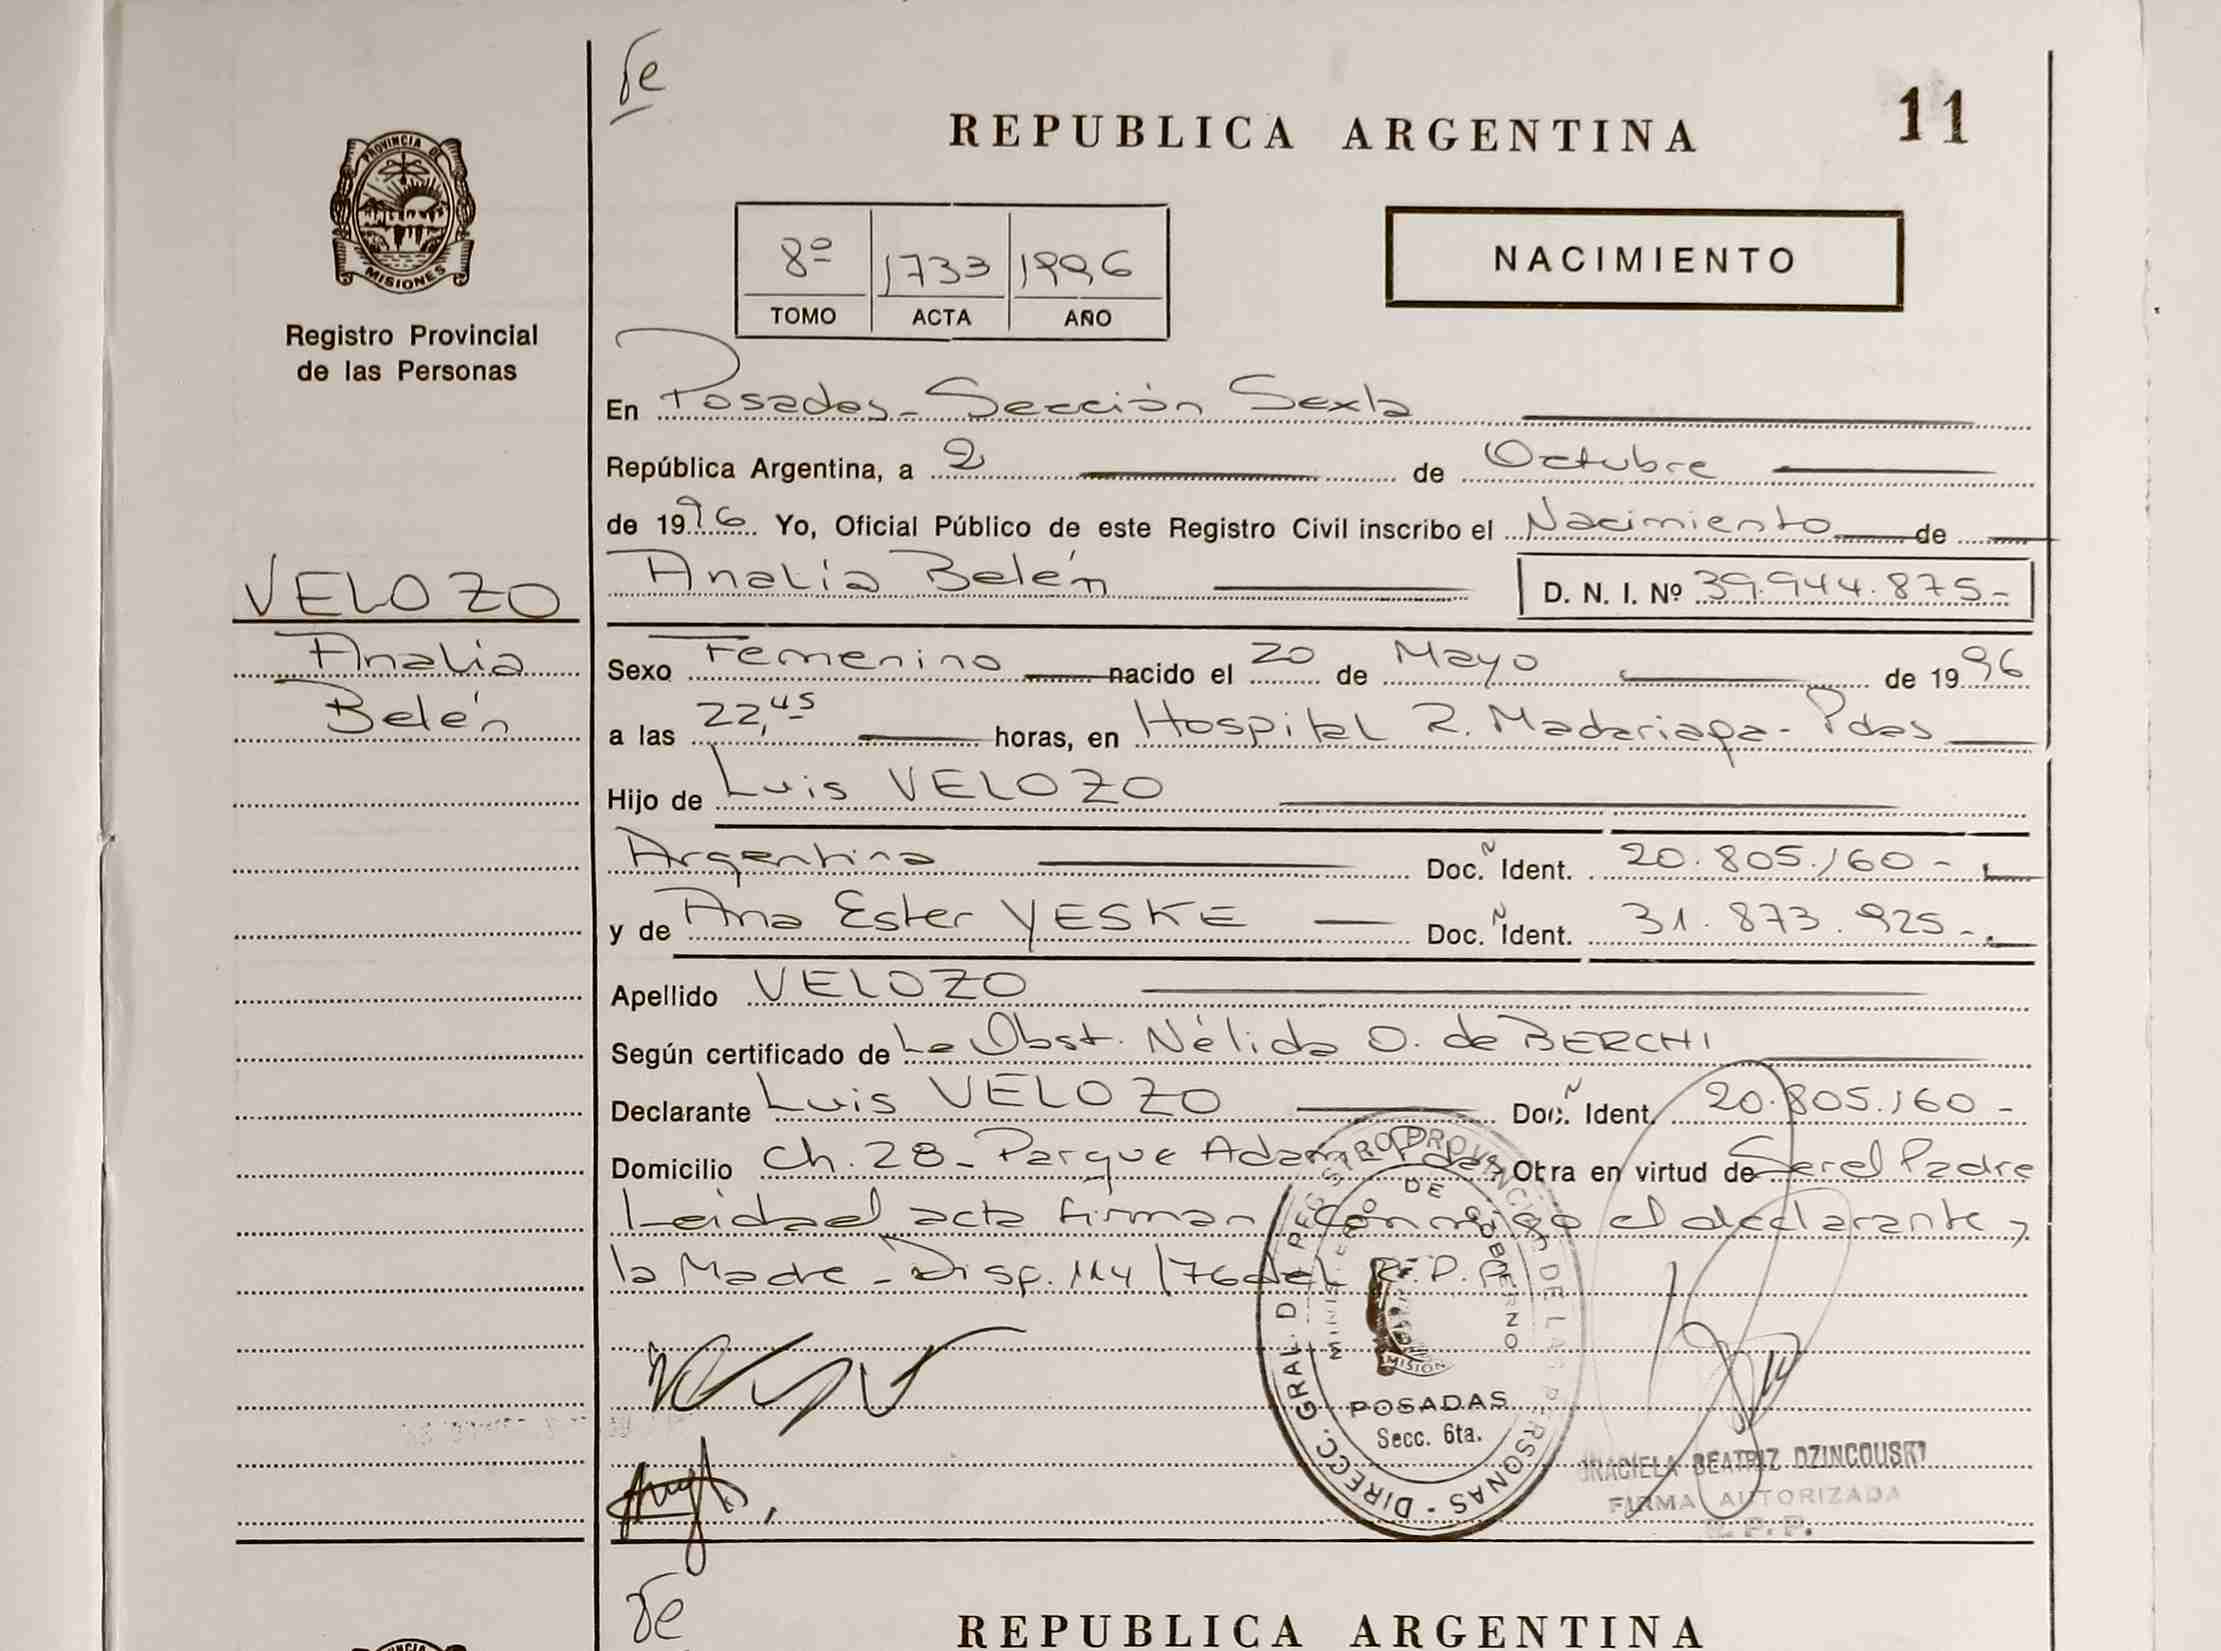 Te
REPUBLICA ARGENTINA
11
PROVINCIA DE
MISIONES
Registro Provincial
de las Personas
8º 1733 1996
TOMO ACTA AÑO
NACIMIENTO
En Posadas - Sección Sexta
República Argentina, a 2 de Octubre
de 1996 Yo, Oficial Público de este Registro Civil inscribo el Nacimiento de
VELOZO
Analía Belén D. N. I. Nº 39.944.875-
Analía
Belén
Sexo Femenino nacido el 20 de Mayo de 1996
a las 22,45 horas, en Hospital R. Madariaga - Pdas
Hijo de Luis VELOZO
Argentina Doc. Ident. 20.805.160-
y de Ana Ester YESKE Doc. Ident. 31.873.925-
Apellido VELOZO
Según certificado de La Obst. Nélida O. de BERCHI
Declarante Luis VELOZO Doc. Ident. 20.805.160-
Domicilio Ch. 28 - Parque Adam Pdas Obra en virtud de Ser el Padre
Leida el acta firman conmigo el declarante y
la Madre - Disp. 114/76 del R.P.P.
DIRECC. GRAL. DE REGISTRO PROVINCIAL DE LAS PERSONAS -
MINISTERIO DE GOBIERNO
POSADAS
Secc. 6ta.
GRACIELA BEATRIZ DZINCOUSKI
FIRMA AUTORIZADA
R. P. P.
REPUBLICA ARGENTINA